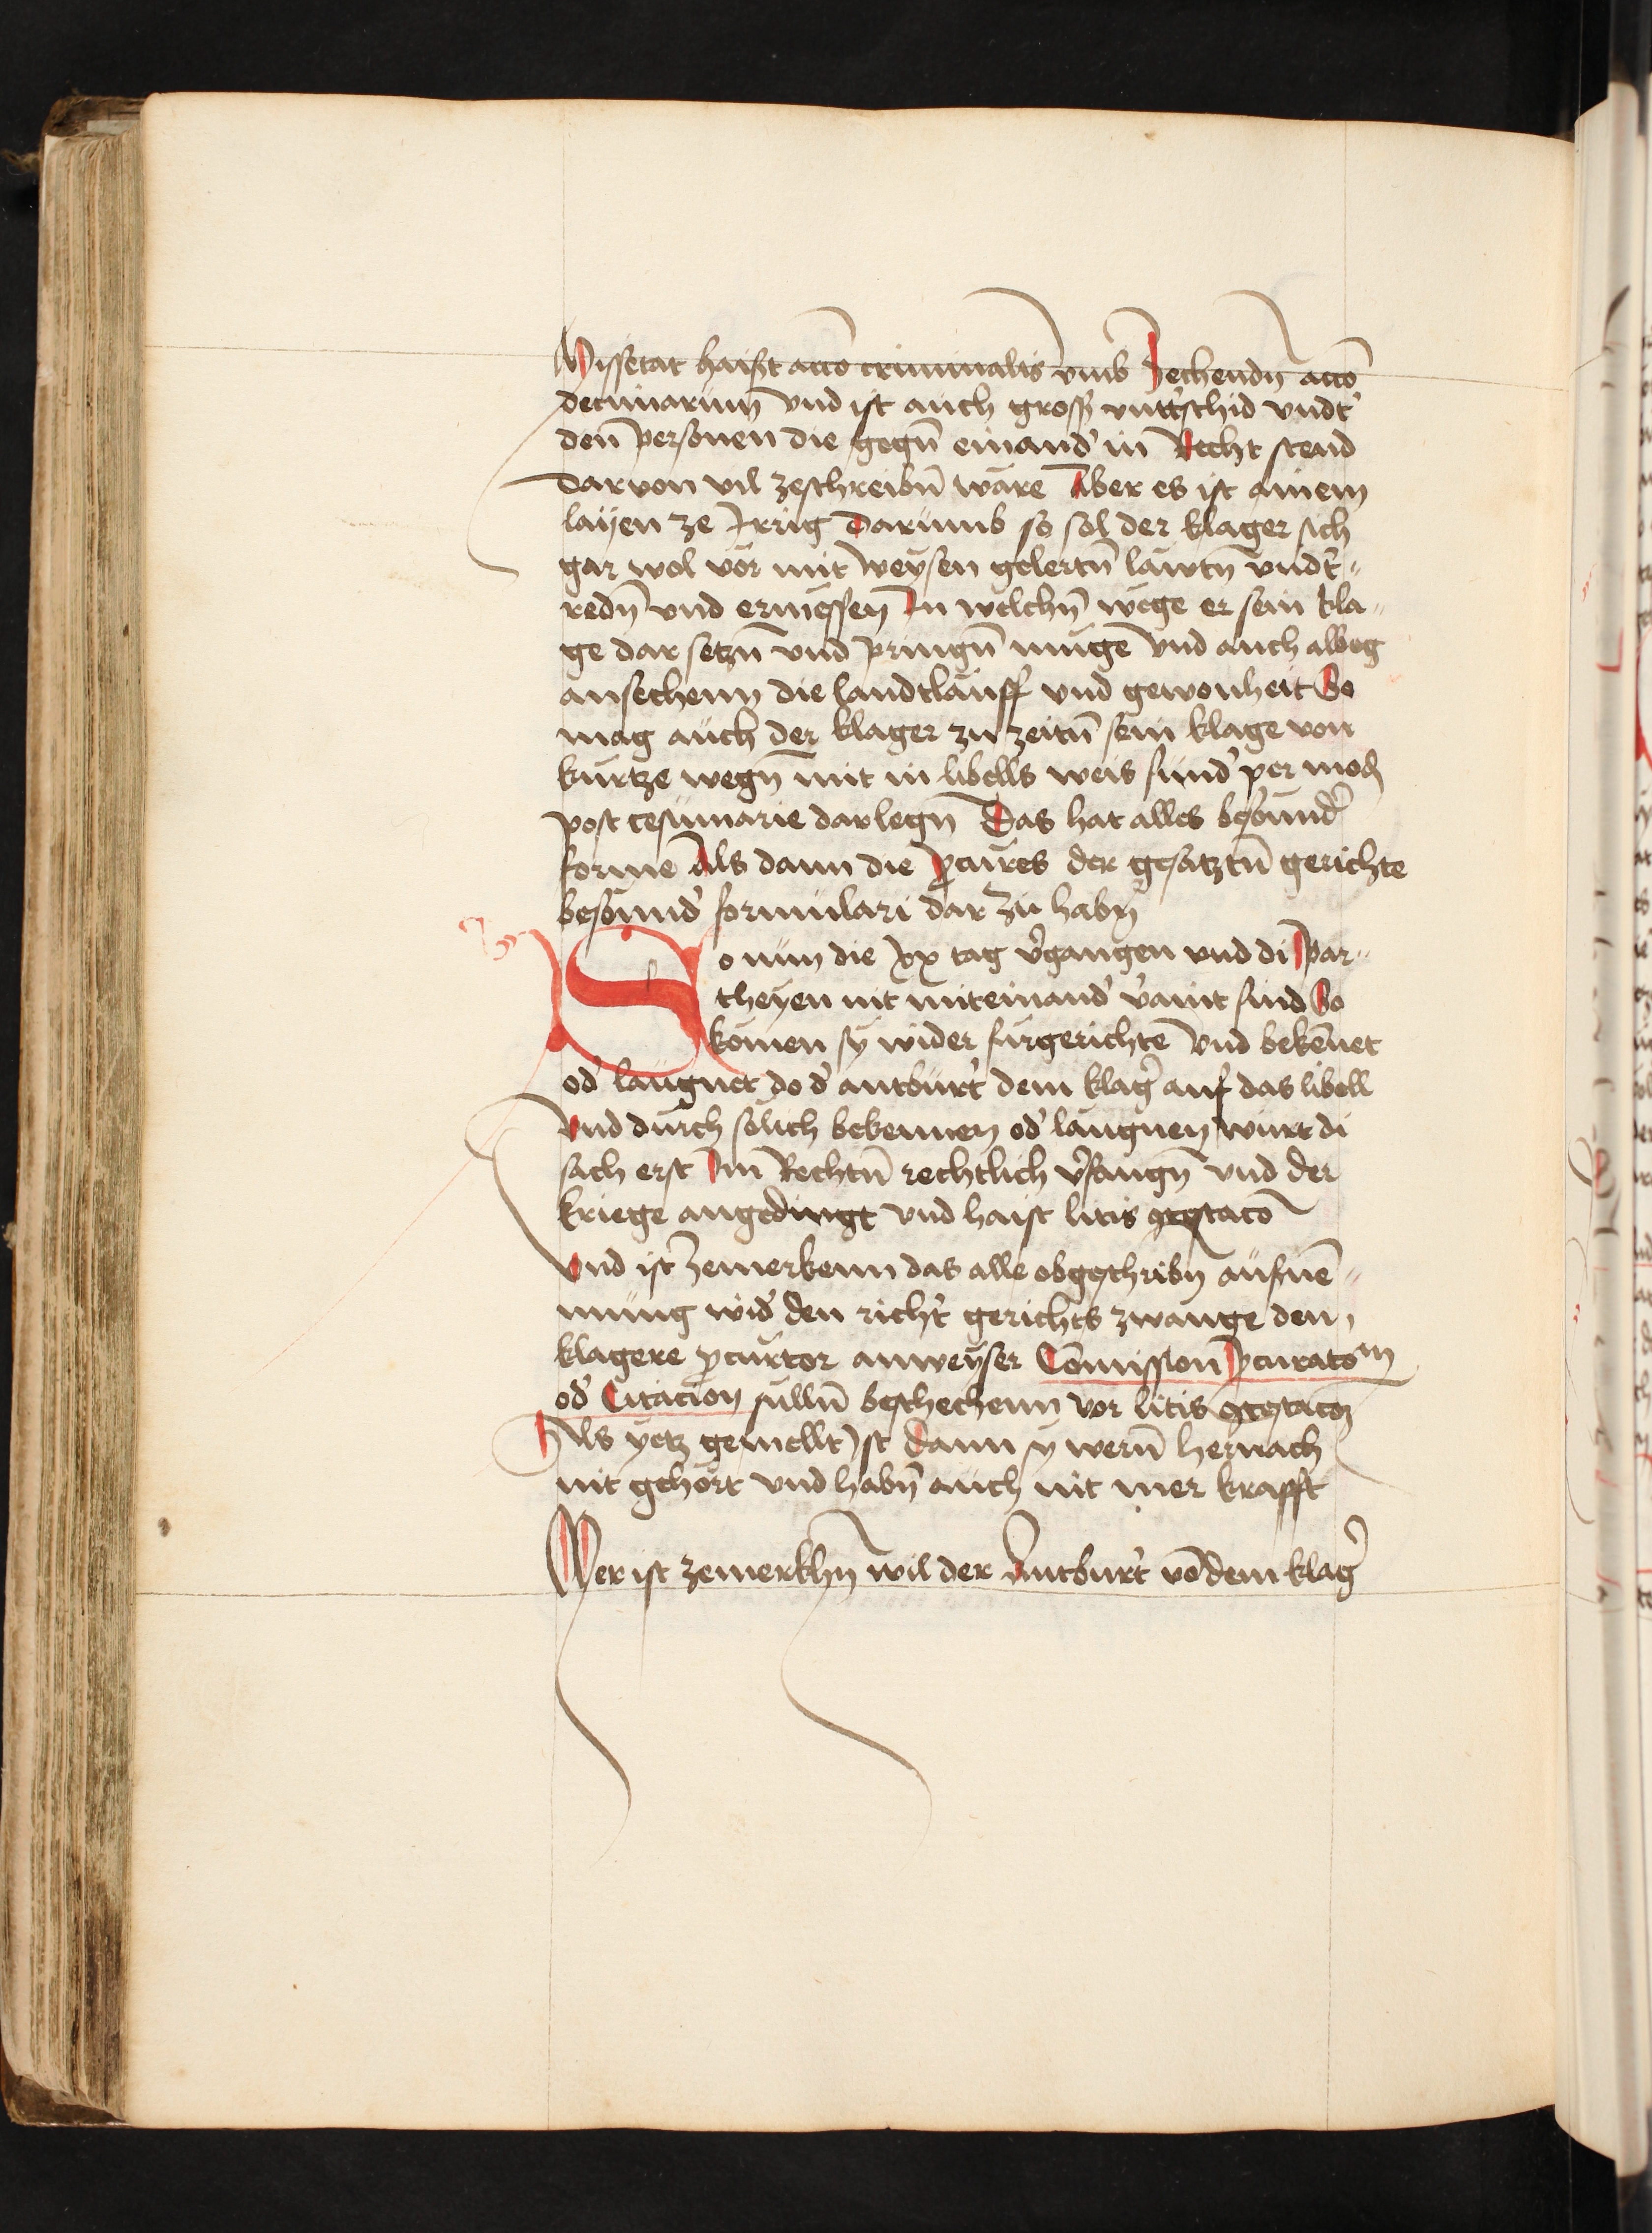 Missetat haist acco criminalis vmb zechendn acco
decimarum vnd ist auch gross vnttschid vndt
den personen die gegn einand in Recht stend
Daruon vil zeschreibn ware Aber es ist ainem
layen ze irrig Darumb so sol der klager sich
gar wol vor mit weysen gelertn lawtn vndt"
redn vnd ermessen In welchn wege er sein kla"
ge dar setzn vnd pringn muge vnd auch albeg
ansechenn die landtlauff vnd gewonheit So
mag auch der klager zu zeitn sein klage von
kurtze wegn nit in libells weis sund per mod
post cesumarie darlegn Das hat alles besund
forme Als dann die pcures der gesatztn gerichte
besund formulari dar zu habn
So nun die xx tag vgangen vnd di par"
theyen nit miteinand vaint sind So
komen sy wider furgerichte vnd bekennet
od laugnet do d antburt dem klag auf das libell
Vnd durch solich bekennen od laugnen wurt di
sach erst Im Rechtn rechtlich vfangn vnd der
kriege angedingt vnd haist litis ɔtestaco
Vnd ist zemerkenn das alle obgeschribn aufne"
mung wid den richt gerichts zwange den
klagere pcurtor anweyser Comission pcuratom
od Citacion sulln beschechenn vor litis ɔtestacoz
Als yetz gemellt ist dann sy wern hernach
nit gehort vnd habn auch nit mer krafft
Mer ist zemerkhn wil der antburt vo dem klag